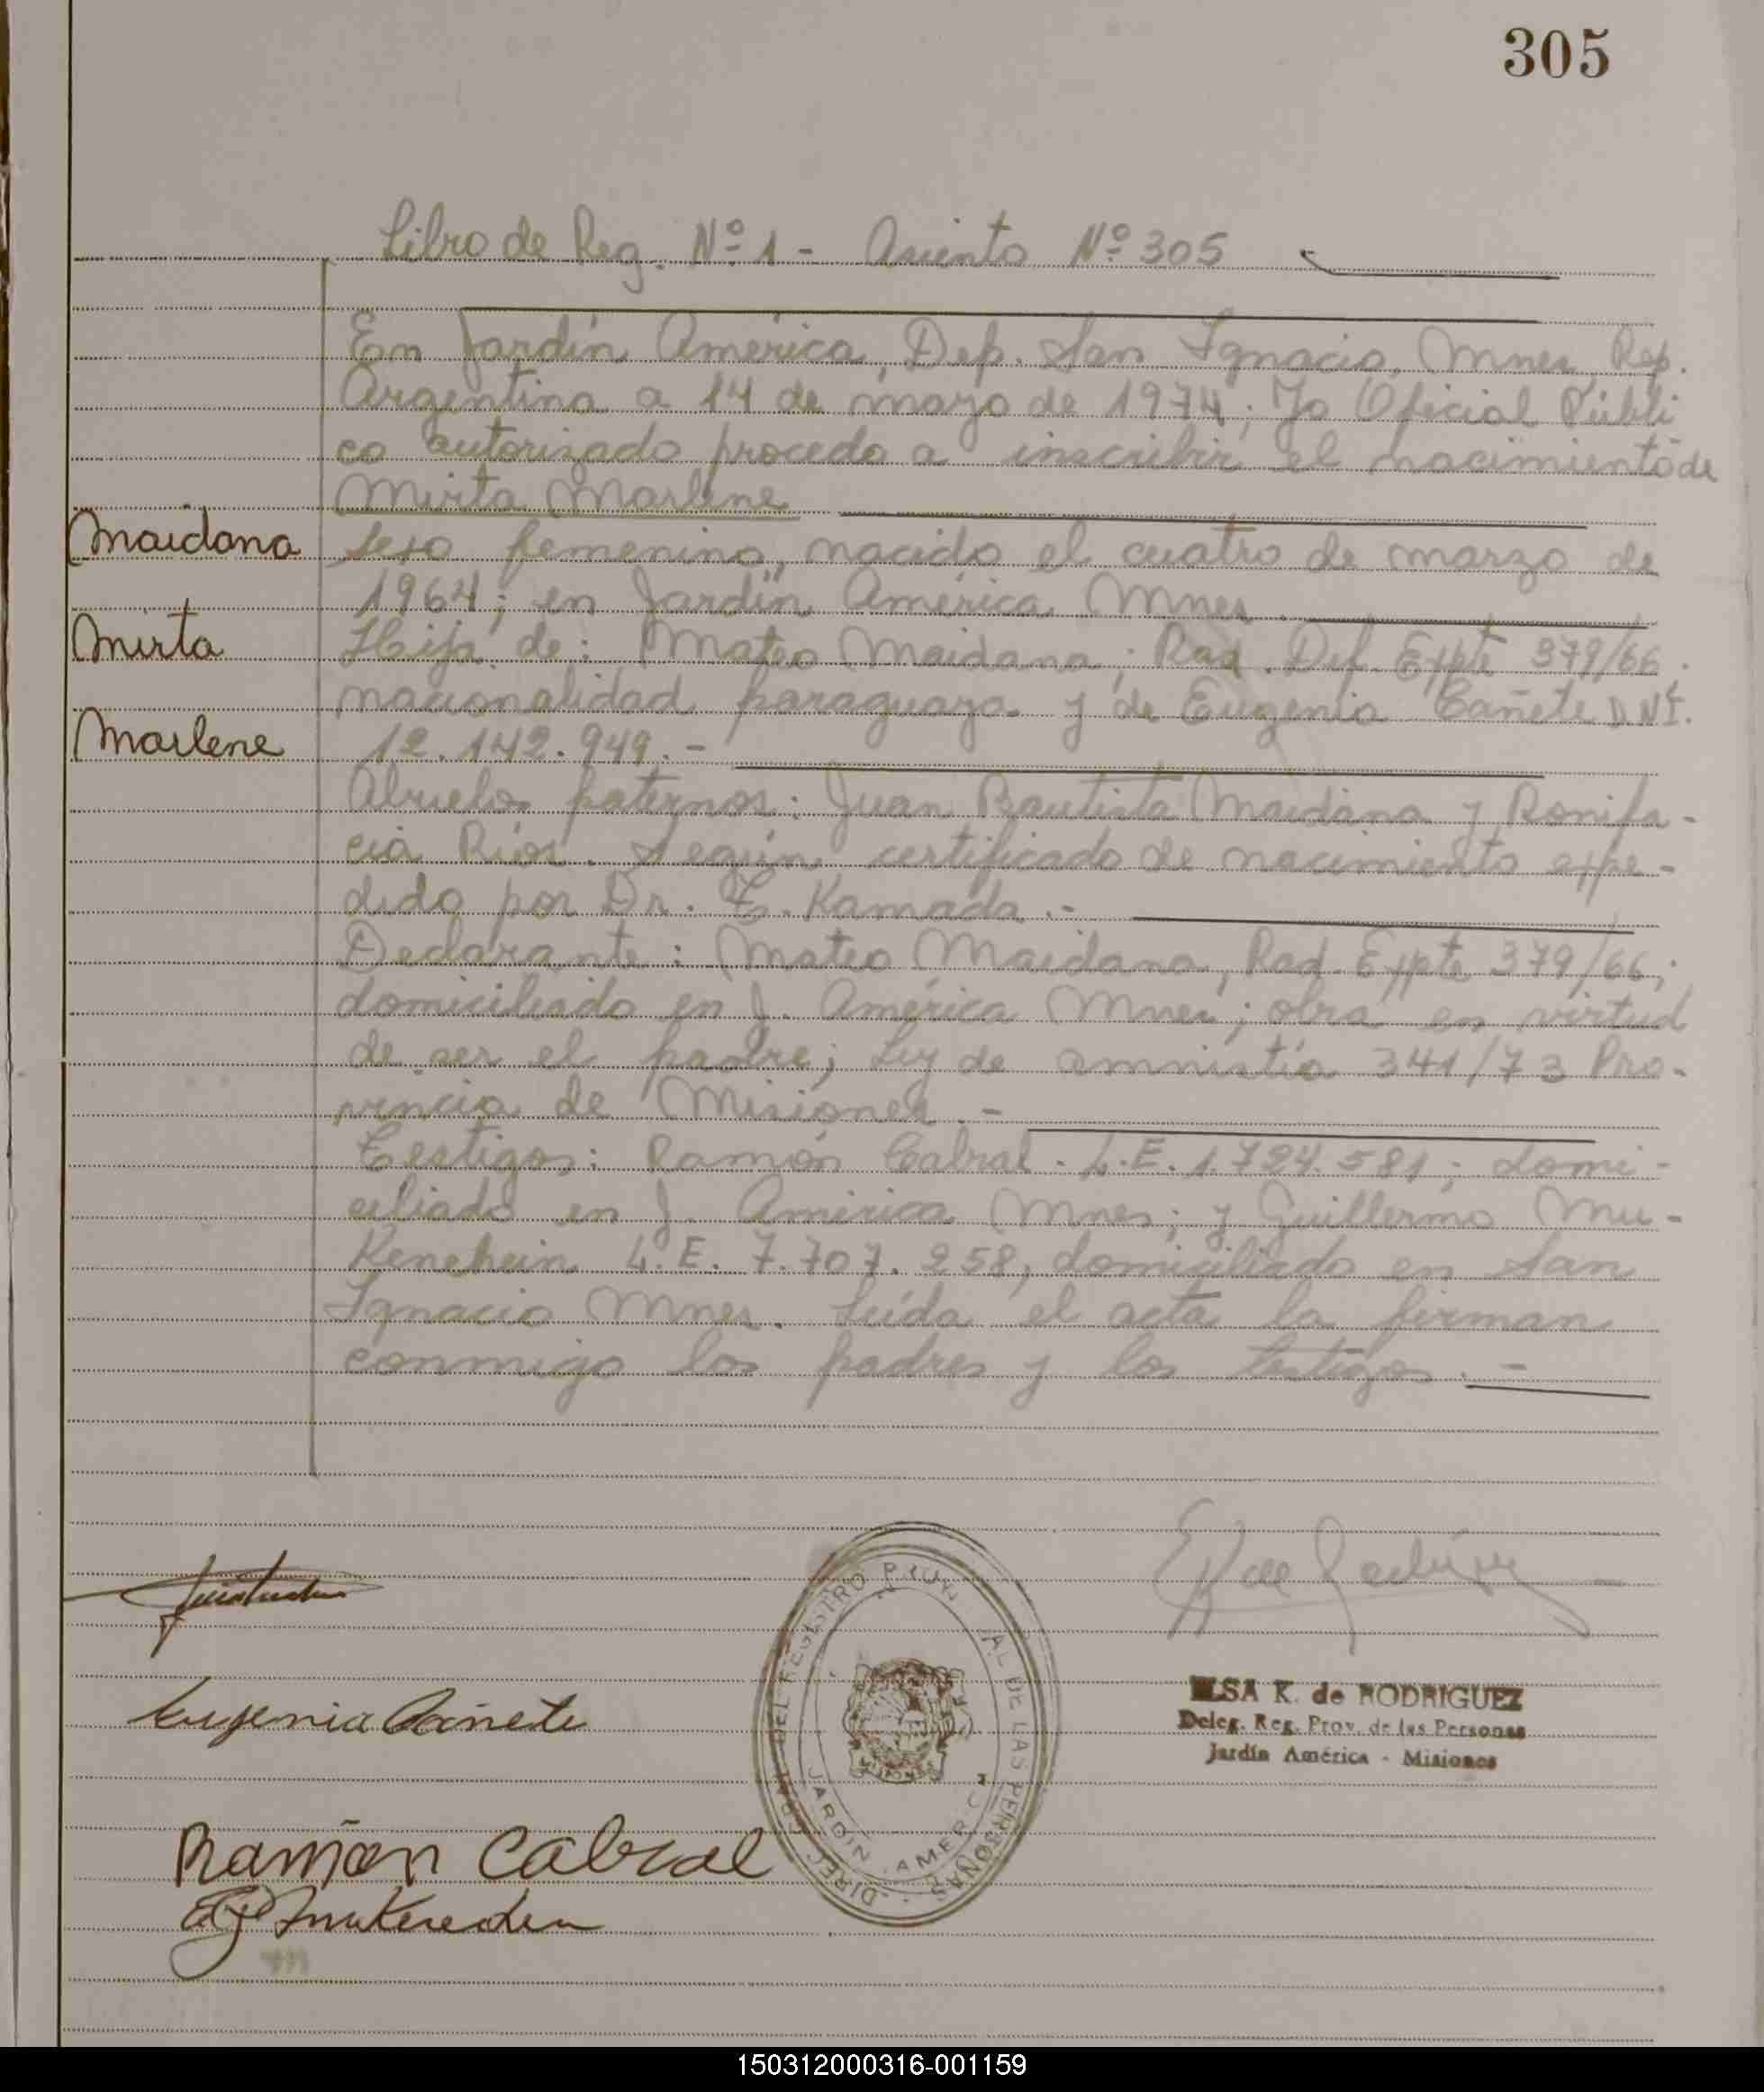 305
Libro de Reg. Nº 1 - Asiento Nº 305
En Jardín América, Dep. San Ignacio, Mnes, Rep.
Argentina a 14 de mayo de 1974; Yo Oficial Públi
co autorizado procedo a inscribir el nacimiento de
Mirta Marlene
Maidana
sexo femenino, nacido el cuatro de marzo de
1964; en Jardín América Mnes
Mirta
Hija de: Mateo Maidana; Rad. Def. Expte 379/66.
nacionalidad paraguaya y de Eugenia Cañete D.N.I.
Marlene
12.142.949.-
Abuelos paternos: Juan Bautista Maidana y Bonifa-
cia Ríos. Según certificado de nacimiento expe-
dido por Dr. T. Kamada.-
Declarante: Mateo Maidana, Rad. Expte 379/66;
domiciliado en J. América Mnes; obra en virtud
de ser el padre; Ley de amnistía 341/73 Pro-
vincia de Misiones.-
Testigos: Ramón Cabral. L.E. 1.794.581; domi-
ciliado en J. América Mnes; y Guillermo Mu-
Kenchein L.E. 7.707.258, domiciliado en San
Ignacio Mnes. Leída el acta la firman
conmigo los padres y los testigos.-
Eugenia Cañete
Ramón Cabral
DIREC. GRAL. DEL REGISTRO PROV. AL DE LAS PERSONAS
JARDIN AMERICA
MISIONES
ELSA K. de RODRIGUEZ
Deleg. Reg. Prov. de las Personas
Jardín América - Misiones
150312000316-001159